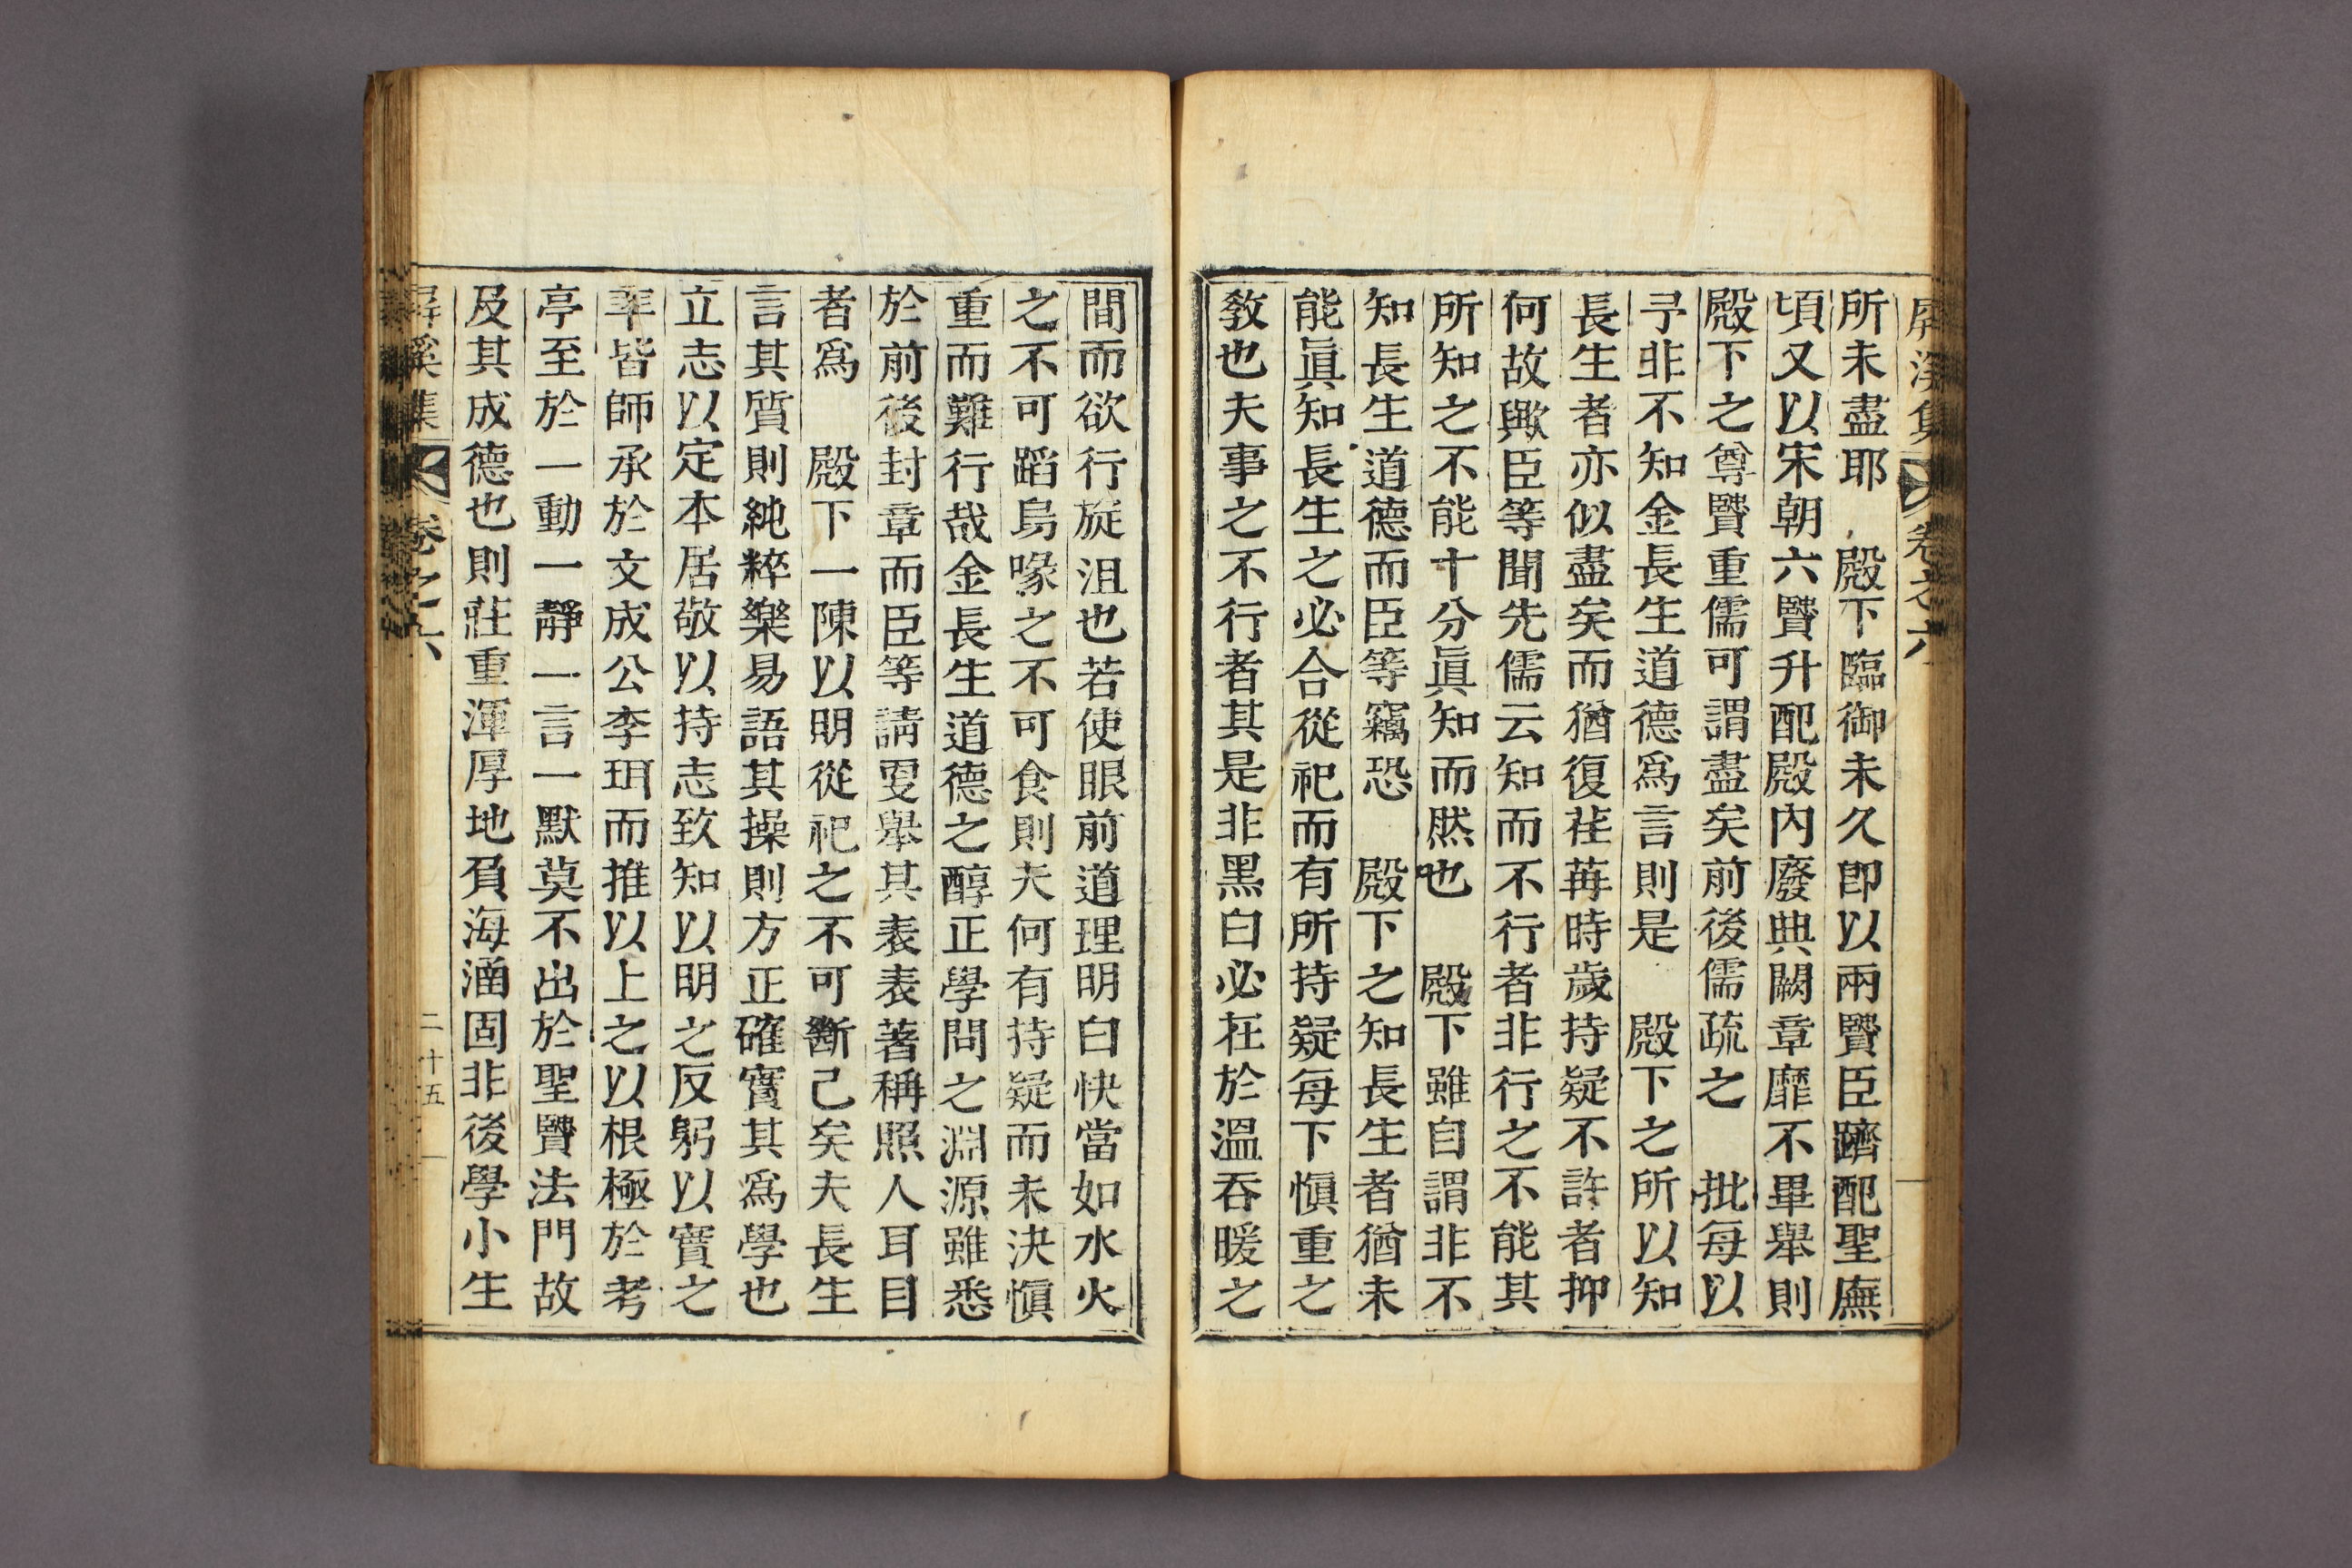 屏溪集 卷之六
所未盡耶 殿下臨御未久卽以兩賢臣躋配聖廡
頃又以宋朝六賢升配殿內廢典闕章靡不畢舉則
殿下之尊賢重儒可謂盡矣前後儒疏之 批每以
予非不知金長生道德爲言則是 殿下之所以知
長生者亦似盡矣而猶復荏苒時歲持疑不許者抑
何故歟臣等聞先儒云知而不行者非行之不能其
所知之不能十分眞知而然也 殿下雖自謂非不
知長生道德而臣等竊恐 殿下之知長生者猶未
能眞知長生之必合從祀而有所持疑每下愼重之
敎也夫事之不行者其是非黑白必在於溫吞暖之
間而欲行旋沮也若使眼前道理明白快當如水火
之不可蹈烏喙之不可食則夫何有持疑而未決愼
重而難行哉金長生道德之醇正學問之淵源雖悉
於前後封章而臣等請更舉其表表著稱照人耳目
者爲 殿下一陳以明從祀之不可斷已矣夫長生
言其質則純粹樂易語其操則方正確實其爲學也
立志以定本居敬以持志致知以明之反躬以實之
率皆師承於文成公李珥而推以上之以根極於考
亭至於一動一靜一言一默莫不出於聖賢法門故
及其成德也則莊重渾厚地負海涵固非後學小生
屏溪集 卷之六 二十五